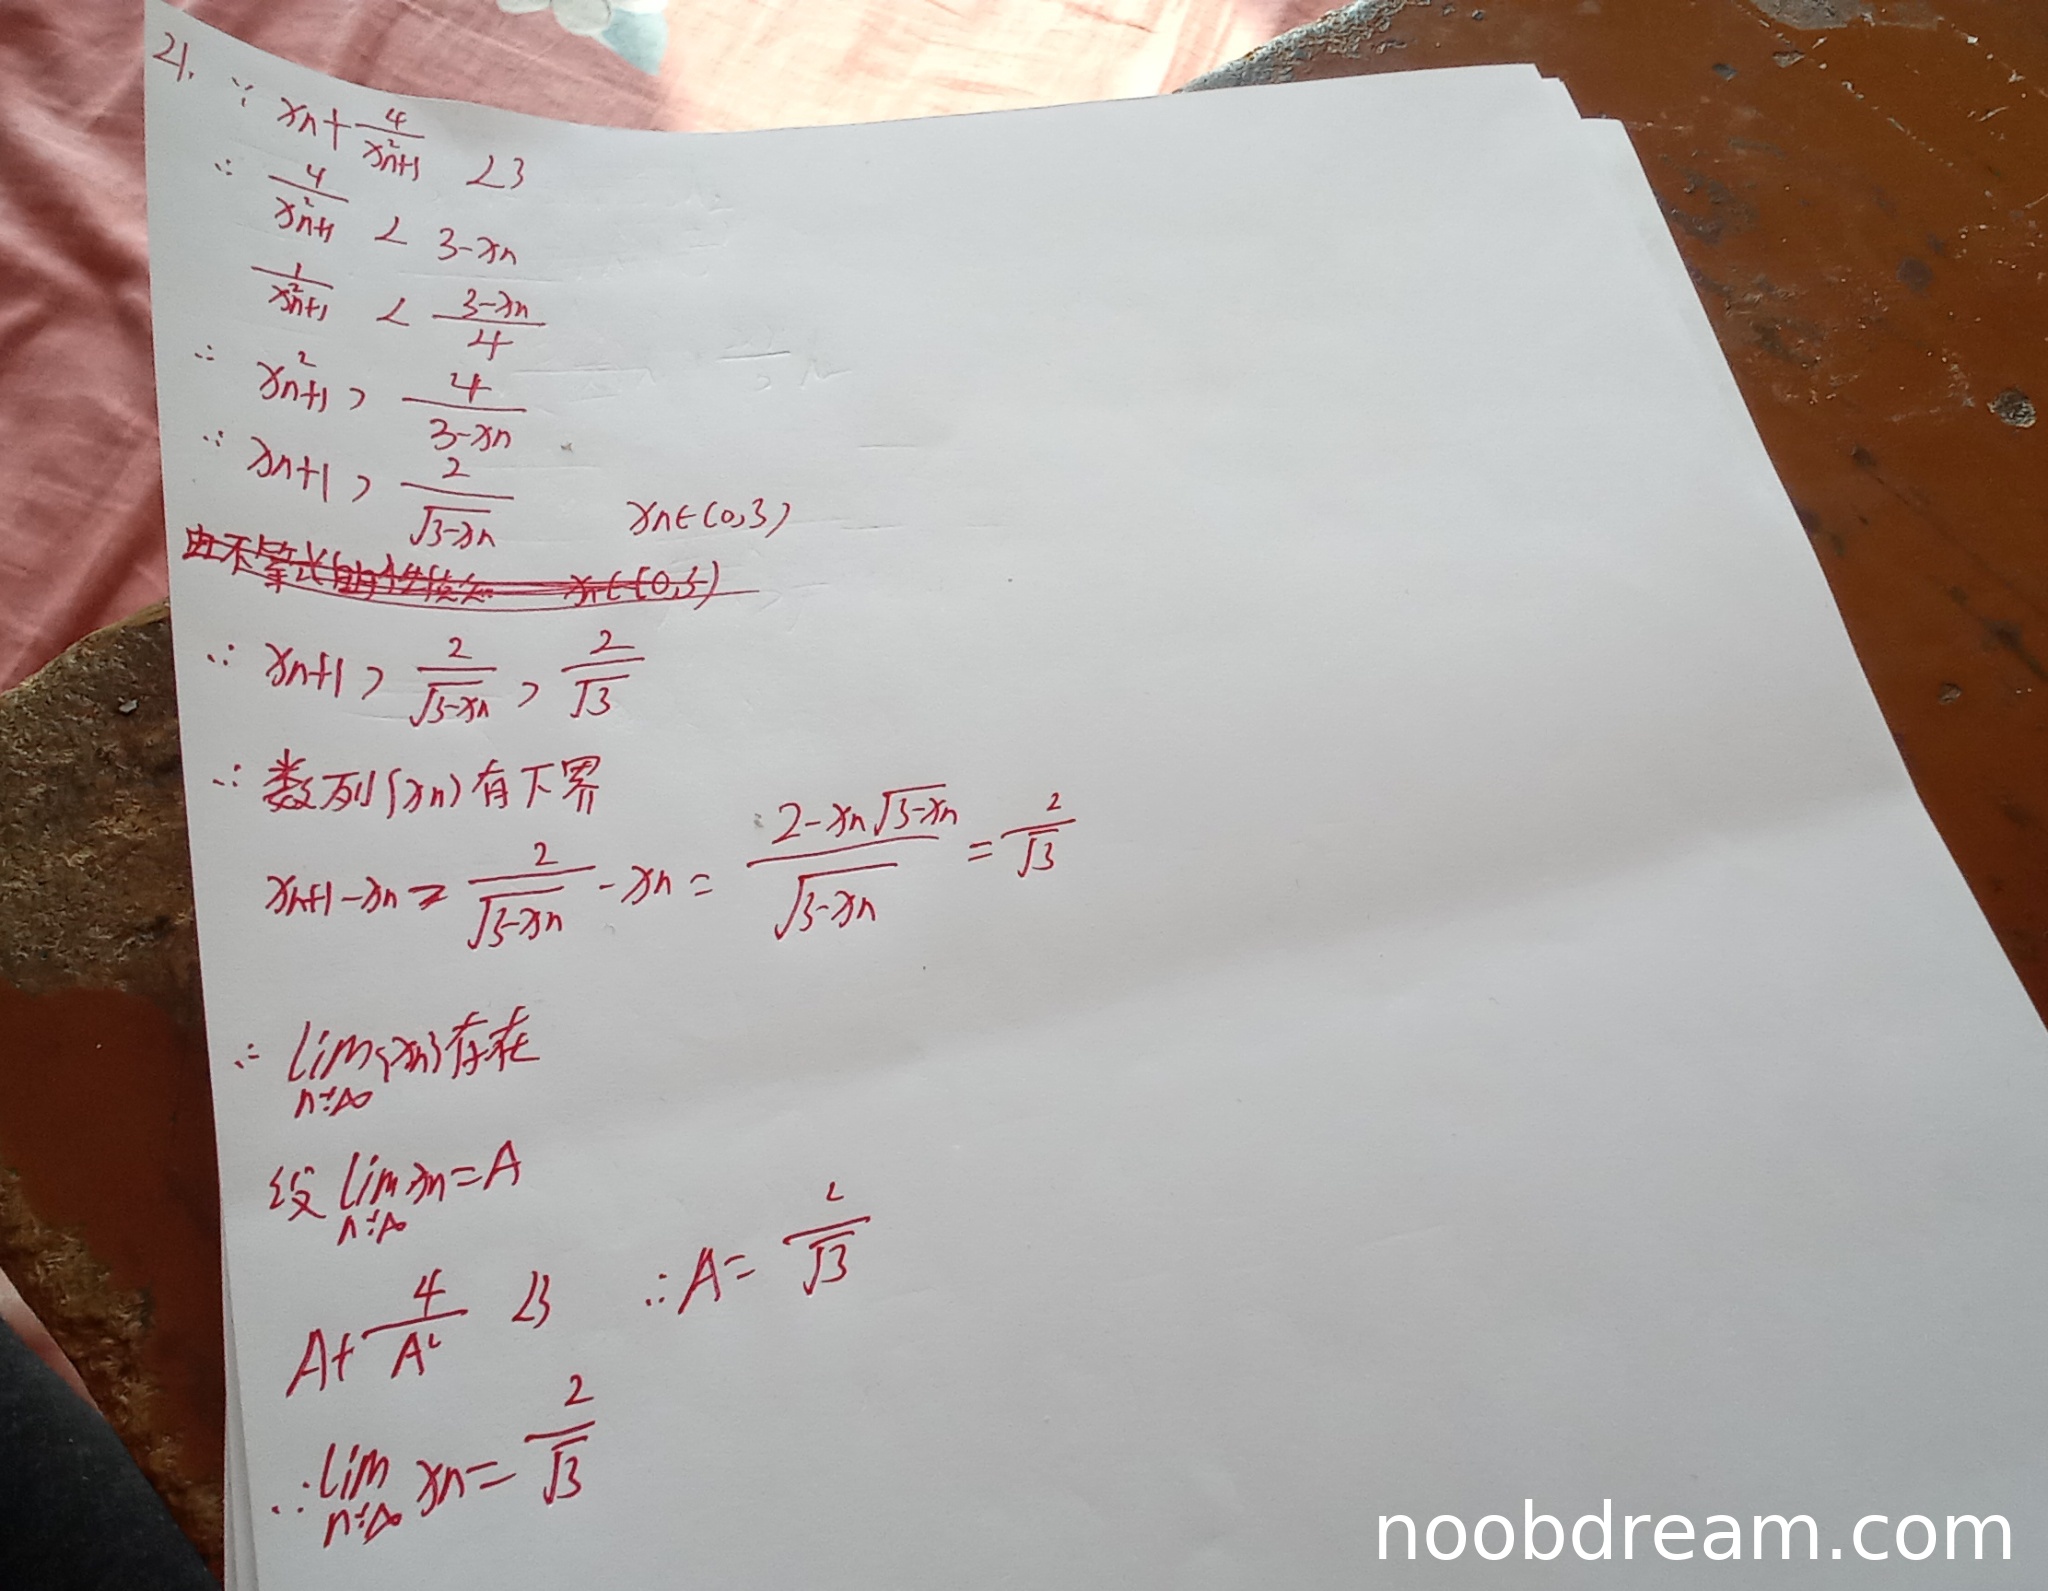 21. ∵ xn + 4/x²n+1 < 3
∴ 4/x²n+1 < 3-xn
1/x²n+1 < (3-xn)/4
∴ x²n+1 > 4/(3-xn)
∴ xn+1 > 2/√(3-xn) xn∈(0,3)
∴ xn+1 > 2/√(3-xn) > 2/√3
∴ 数列{xn}有下界
xn+1-xn > 2/√(3-xn) - xn = (2-xn√(3-xn))/√(3-xn) = 2/√3
∴ lim n→∞ {xn}存在
设 lim n→∞ xn=A
A+4/A² <3 ∴A=2/√3
∴ lim n→∞ xn=2/√3
noobdream.com